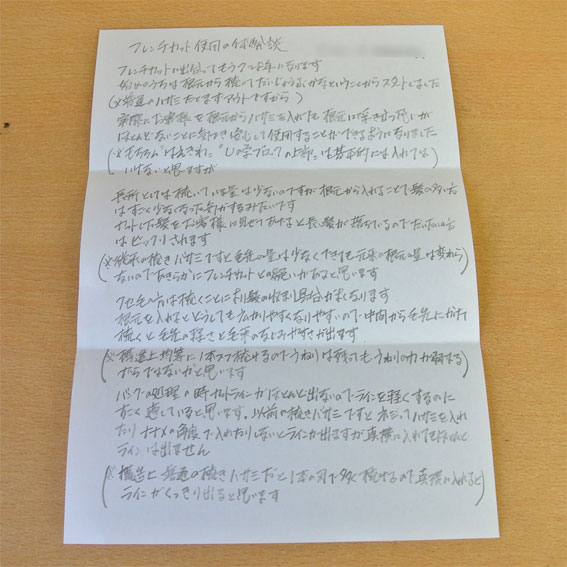 フレンチカット使用の体験談
フレンチカットに出会ってもう 年になります
始めのうちは根元から梳いてだいじょうぶかなということからスタートしました
(※普通のハサミだとまずアウトですから)
実際にお客様を根元からハサミを入れても根元は 立つ が
ほとんどないことに気づき安心して使用することができるようになりました
(※もちろん はえぎわに "Uの字ブロックの上部"は基本的には入れては
いけないと思いますが
長所としては梳いている量は少ないのですが根元から入れることで髪の多い方
はすごく少なくなった気がするみたいです
カットした髪をお客様に見せてあげると長い髪が落ちているのでだいたいの方
はビックリされます
(※従来の梳きバサミですと毛先の量は少なくできても元来の根元の量は変わら
ないのであきらかにフレンチカットとの違いがあると思います
クセ毛の方は梳くごとに 髪の収まり具合が良くなります
根元を入れるとどうしても広がりやすくなりやすいので中間から毛先にかけ
梳くと毛先の軽さと毛束のなじみやすさが出ます
(※構造上均等に1本づつ梳けるのでうねりは残ってもうねりの力が弱まる
からではないかと思います
バックの処理の時カットラインがほとんど出ないのでラインを軽くするのに
すごく適していると思います。以前の梳きバサミですと ハサミを入れ
たりナナメの角度で入れたりしないとラインが出ますが真横に入れてもほとんど
ラインは出ません
(※構造上 普通の梳きバサミだと1本の刃で多く梳けるので真横に入れると
ラインがくっきり出ると思います